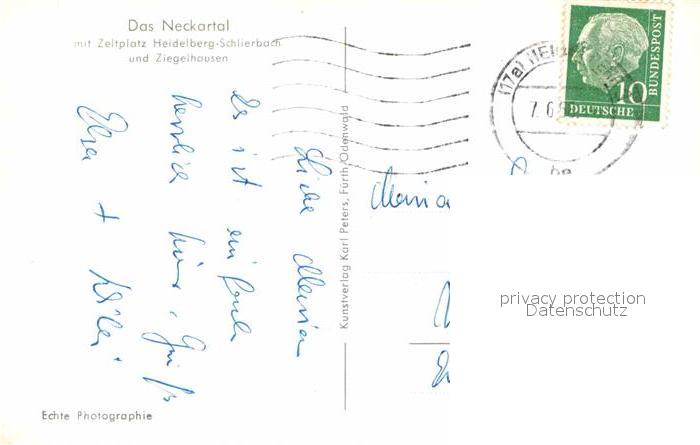 Das Neckartal
mit Zeltplatz Heidelberg-Schlierbach
und Ziegelhausen
Liebe Maria
Es ist einfach
herrlich hier, Grüße
Elsa + Willi
Kunstverlag Karl Peters, Fürth/Odenwald
Echte Photographie
(17a) HEI
7. 6.
DEUTSCHE
BUNDESPOST
10
Maria
privacy protection
Datenschutz